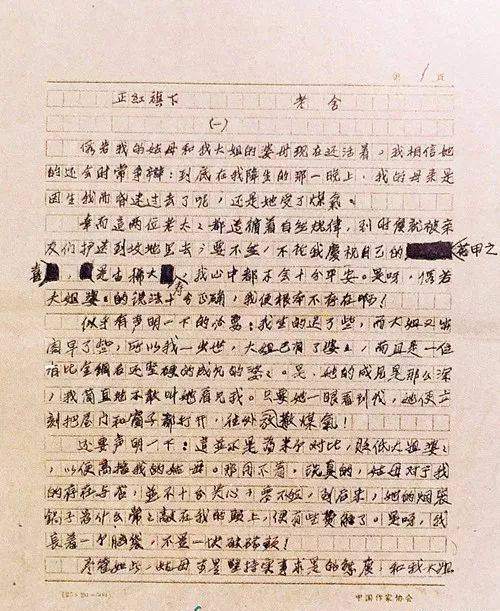 第 1 页
正红旗下 老舍
(一)
假若我的姑母和我大姐的婆母现在还活着，我相信她
们还会时常争辩：到底在我降生的那一晚上，我的母亲是
因生我而昏迷过去了呢，还是她受了煤气。
幸而这两位老太太都遵循着自然规律，到时候就被亲
友们护送到坟地里去；要不然，不论我庆祝自己的花甲之
喜，还是古稀大寿，我心中都不会十分平安。是呀，假若
大姐婆婆的说法十分正确，我便根本不存在啊！
似乎有声明一下的必要：我生的迟了些，而大姐又出
阁早了些，所以我一出世，大姐已有了婆婆，而且是一位
有比金钢石还坚硬的成见的婆婆。是，她的成见是那么深，
我简直地不敢叫她看见我。只要她一眼看到我，她便立
刻把屋门和窗子都打开，往外散放煤气！
还要声明一下：这并不是为来个对比，贬低大姐婆婆
，以便高抬我的姑母。那用不着。说真的，姑母对于我
的存在与否，并不十分关心；要不然，到后来，她的烟袋
锅子为什么常常敲在我的头上，便有些费解了。是呀，我
长着一个脑袋，不是一块破砖头！
尽管如此，姑母可是坚持实事求是的态度，和我大姐
中国作家协会